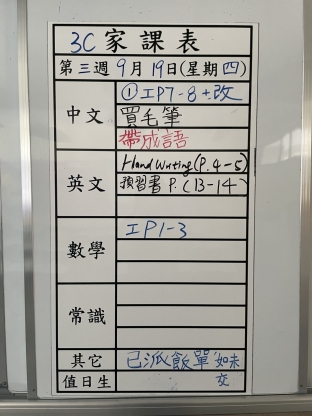 3C 家課表
第三週 9月19日(星期四)
中文
①工P7-8+改
買毛筆
帶成語
英文
Hand Writing (P.4-5)
預習書 P.(13-14)
數學
工P1-3
常識
其它
已派飯單 如未
交
值日生